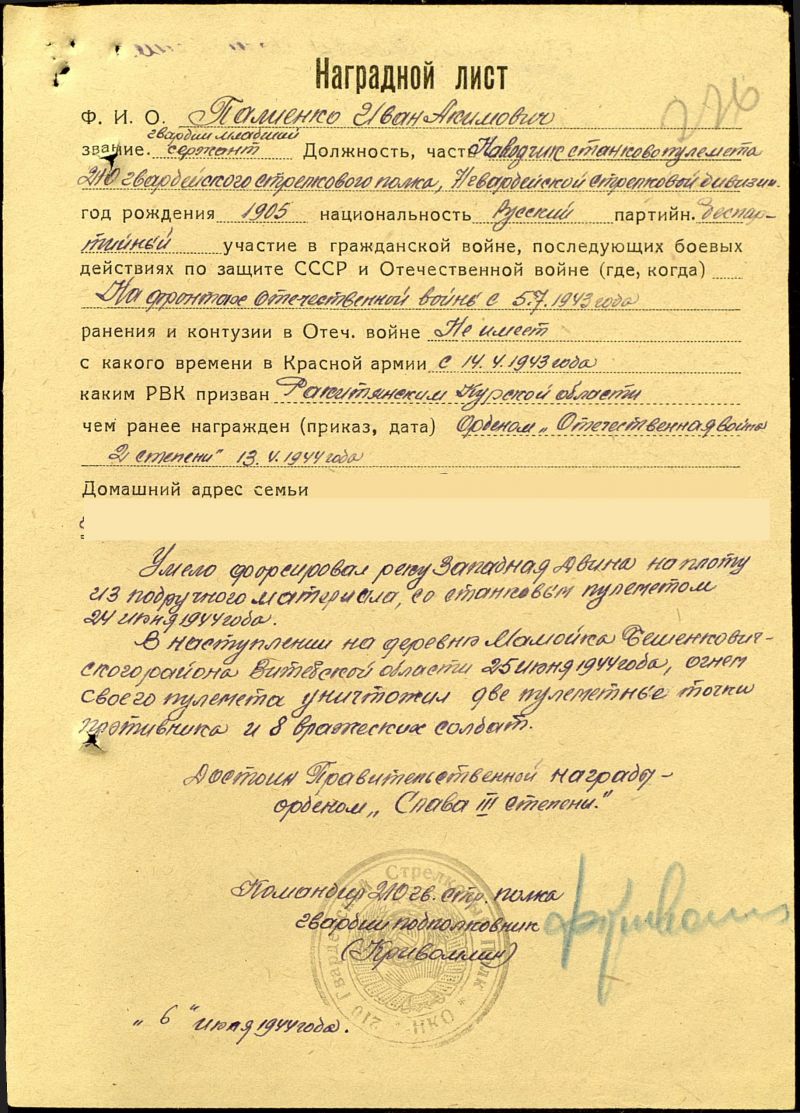 Наградной лист
226
Ф. И. О. Палиенко Иван Акимович
гвардии младший
звание. сержант Должность, часть Наводчик станково пулемета
210 гвардейского стрелкового полка, гвардейской стрелковой дивизии.
год рождения 1905 национальность Русский партийн. Беспар-
тийный участие в гражданской войне, последующих боевых
действиях по защите СССР и Отечественной войне (где, когда)
На фронтах отечественной войны с 5.7.1943 года
ранения и контузии в Отеч. войне Не имеет
с какого времени в Красной армии с 14.4.1943 года
каким РВК призван Ракитянским Курской области
чем ранее награжден (приказ, дата) Орденом „Отечественная война
2 степени" 13.V.1944 года
Домашний адрес семьи
Умело форсировал реку Западная Двина на плоту
из подручного материала, со станковым пулеметом
24 июня 1944 года.
В наступлении на деревню Мамойка Бешенкович-
ского района Витебской области 25 июня 1944 года, огнем
своего пулемета уничтожил две пулеметные точки
противника и 8 вражеских солдат.
Достоин Правительственной награды-
орденом „Слава III степени."
Командир 210 гв. стр. полка
гвардии подполковник
(Кривомлин)
210 Гвардейский Стрелковый Полк * НКО *
„ 6 " июля 1944 года.